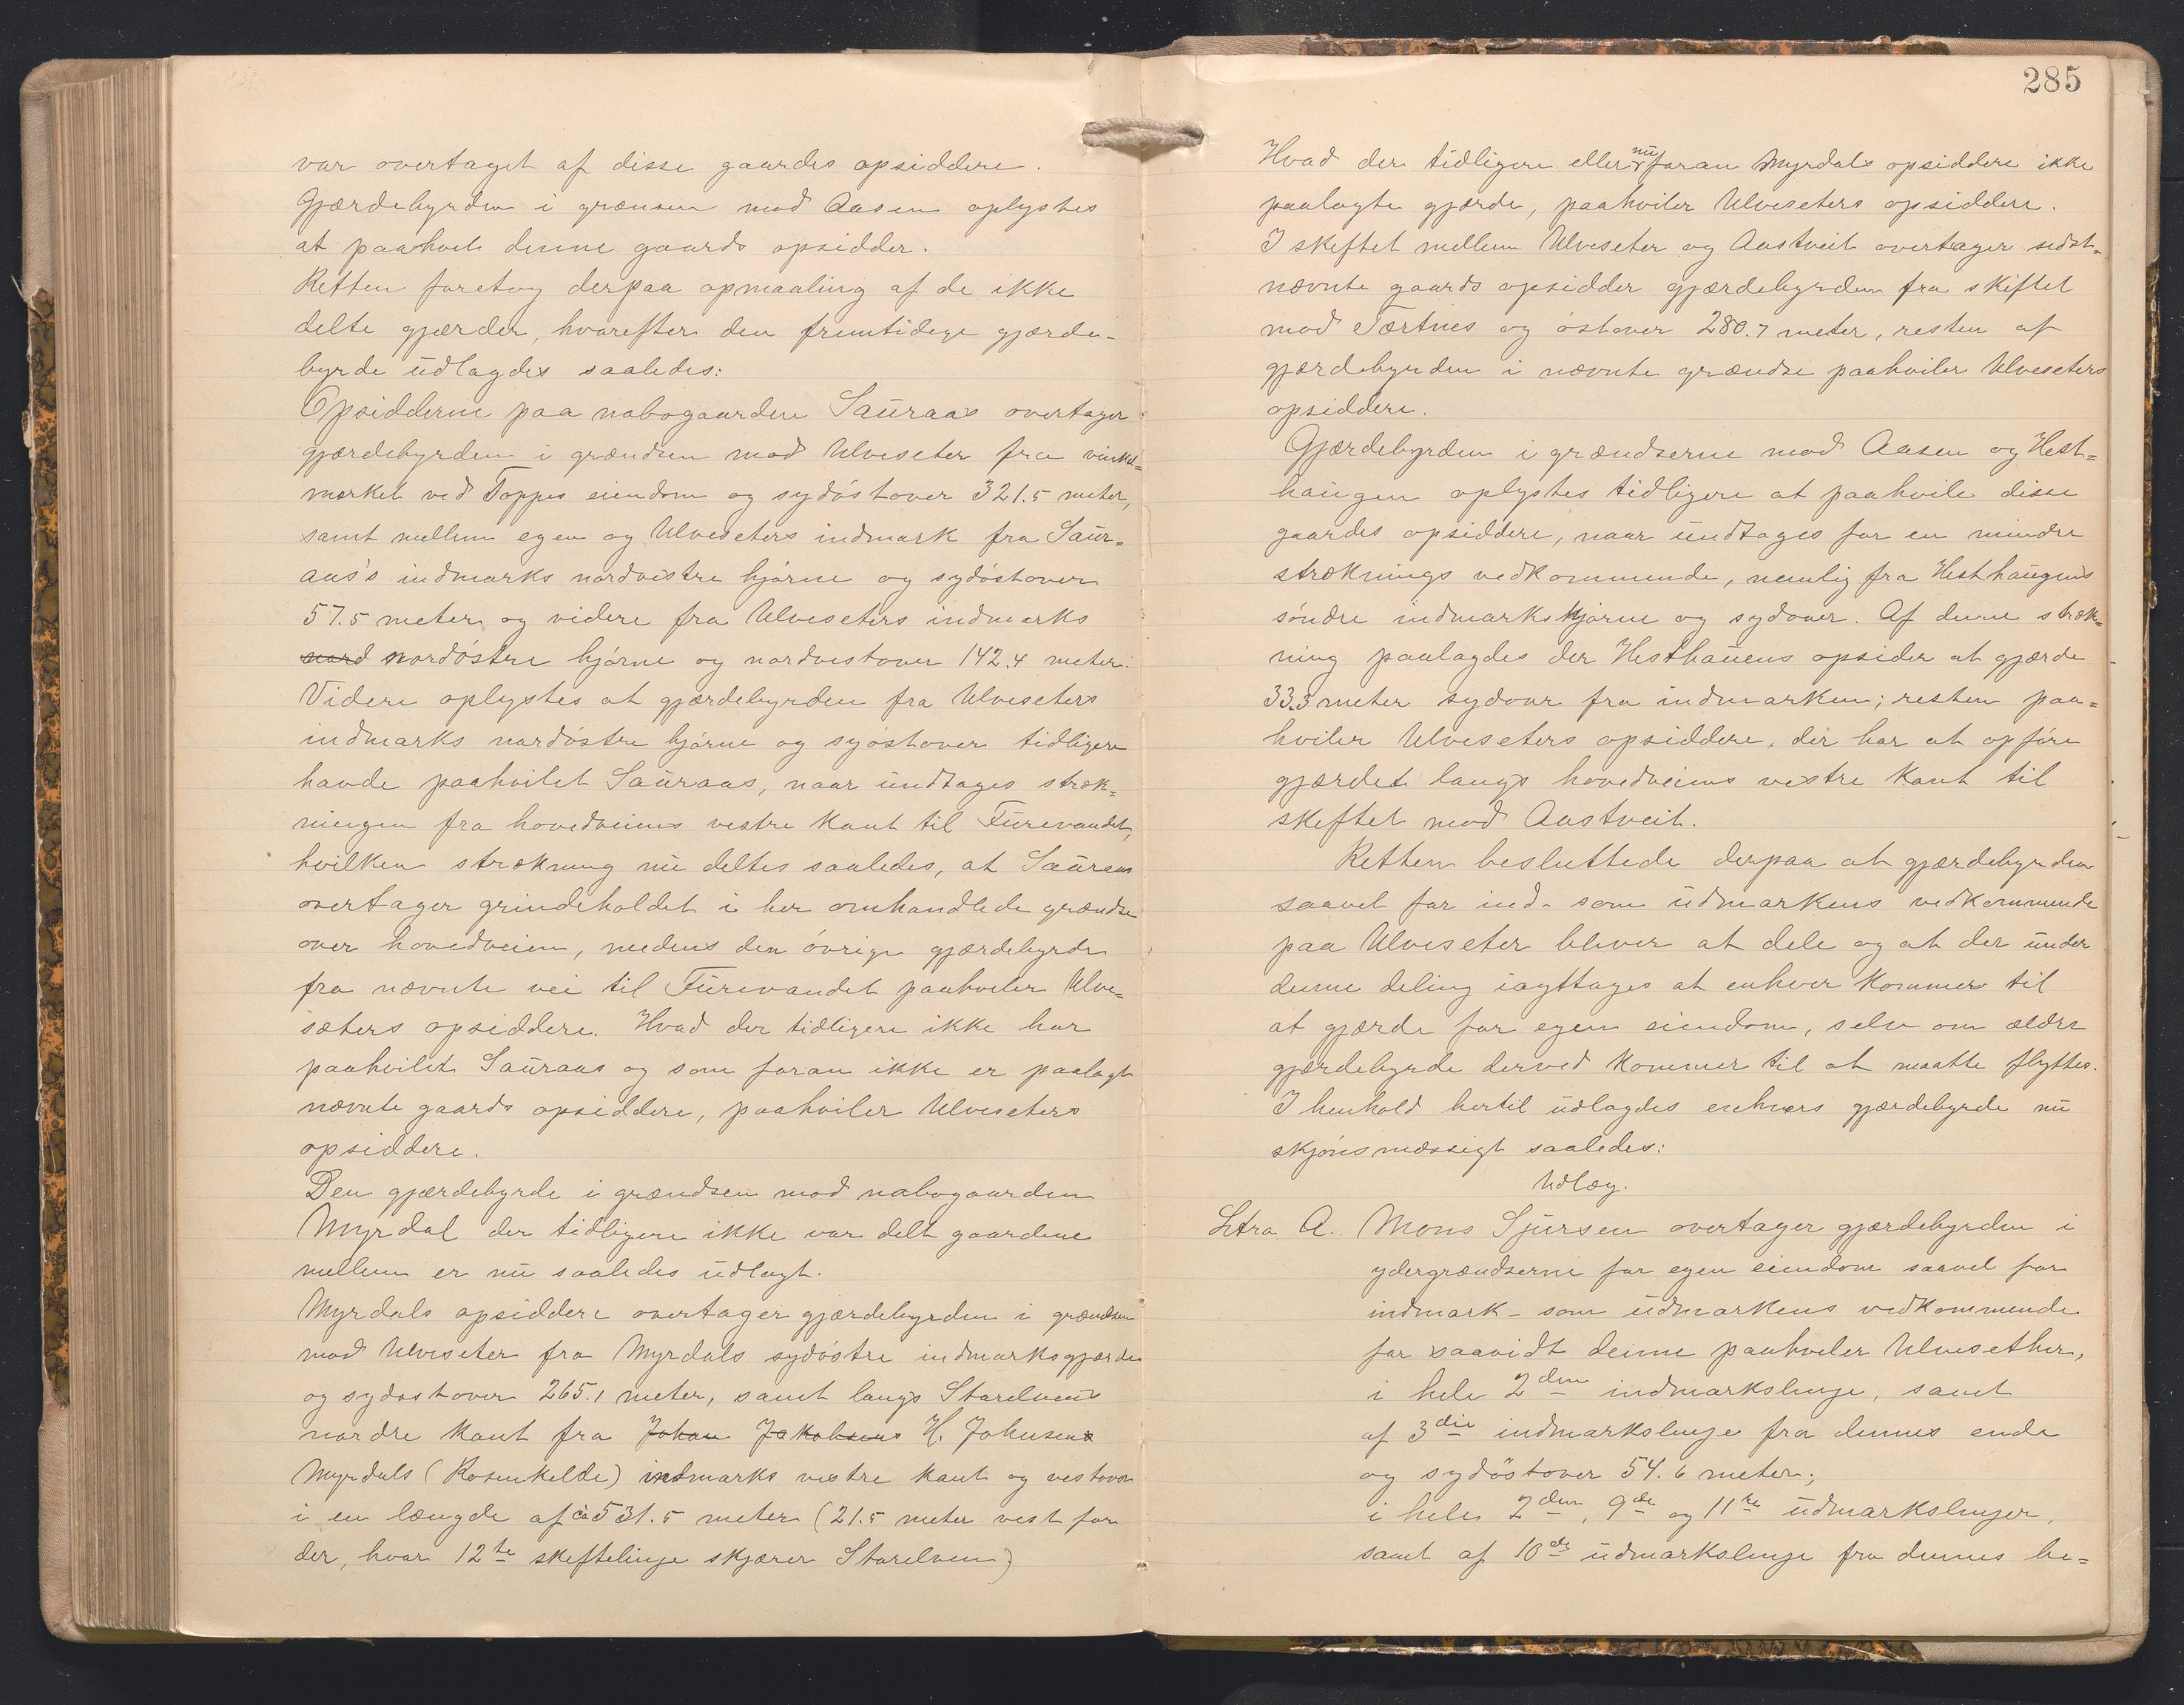 var overtaget af disse gaardes opsiddere.
Gjærdebyrden i grænsen mod Aasen oplystes
at paahvile denne gaards opsidder.
Retten foretog derpaa opmaaling af de ikke
delte gjærder, hvorefter den fremtidige gjærde-
byrde udlagdes saaledes:
Opsidderne paa nabogaardene Sauraas overtager
gjærdebyrden i grændsen mod Ulveseter fra vinkel=
mærket ved Toppes eiendom og sydöstover 321.5 meter,
samt mellem egen og Ulveseters indmark fra Saur=
aas's indmarks nordvestre hjörne og sydöstover
57.5 meter og videre fra Ulveseters indmarks
nord nordöstre hjörne og nordvestover 142.4 meter.
Videre oplystes at gjærdebyrden fra Ulveseters
indmarks nordöstre hjörne og syöstover tidligere
havde paahvilet Sauraas, naar undtages stræk=
ningen fra hovedveiens vestre kant til Furevandet,
hvilken strækning nu deltes saaledes, at Sauraas
overtager grindeholdet i her omhandlede grændse
over hovedveien, medens den övrige gjærdebyrde
fra nævnte vei til Furevandet paahviler Ulve=
sæters opsiddere. Hvad der tidligere ikke har
paahvilet Sauraas og som foran ikke er paalagt
nævnte gaards opsiddere, paahviler Ulveseters
opsiddere.
Den gjærdebyrde i grændsen mod nabogaarden
Myrdal der tidligere ikke var delt gaardene
mellem er nu saaledes udlagt.
Myrdals opsiddere overtager gjærdebyrden i grændsen
mod Ulveseter fra Myrdals sydöstre indmarksgjærde
og sydostover 265.1 meter, samt langs Storelvens
nordre kant fra Johan Jakobsens H. Johnsens
Myrdals (Rosenkelde) indmarks vestre kant og vestover
i en længde af ca 531.5 meter (21.5 meter vest for
der, hvor 12te skeftelinje skjærer Storelven)
285
Hvad der tidligere eller nu foran Myrdals opsiddere ikke
paalagte gjærde, paahviler Ulveseters opsiddere.
I skeftet mellem Ulveseter og Aastveit overtager sidst=
nævnte gaards opsidder gjærdebyrden fra skiftet
mod Tærtnes og östover 280.7 meter, resten af
gjærdebyrden i nævnte grændse paahviler Ulveseters
opsiddere.
Gjærdebyrden i grændserne mod Aasen og Hest=
haugen oplystes tidligere at paahvile disse
gaardes opsiddere, naar undtages for en mindre
stræknings vedkommende, nemlig fra Hesthaugens
söndre indmarks hjörne og sydover. Af denne stræk=
ning paalagdes der Hesthauens opsider at gjærde
33.3 meter sydover fra indmarken; resten paa=
hviler Ulveseters opsiddere, der har at opföre
gjærdet langs hovedveiens vestre kant til
skeftet mod Aastveit.
Retten besluttede derpaa at gjærdebyrden
saavel for ind- som udmarkens vedkommende
paa Ulveseter bliver at dele og at der under
denne deling iagttages at enhver kommer til
at gjærde for egen eiendom, selv om ældre
gjærdebyrde derved kommer til at maatte flyttes.
I henhold hertil udlagdes enhvers gjærdebyrde nu
skjönsmæssigt saaledes:
Udlæg.
Litra A. Mons Sjursen overtager gjærdebyrden i
ydergrændserne for egen eiendom saavel for
indmark- som udmarkens vedkommende
for saavidt denne paahviler Ulvesether,
i hele 2den indmarkslinje, samt
af 3die indmarkslinje fra dennes ende
og sydöstover 54.6 meter;
i hele 2den, 9de og 11te udmarkslinjer,
samt af 10de udmarkslinje fra dennes be=